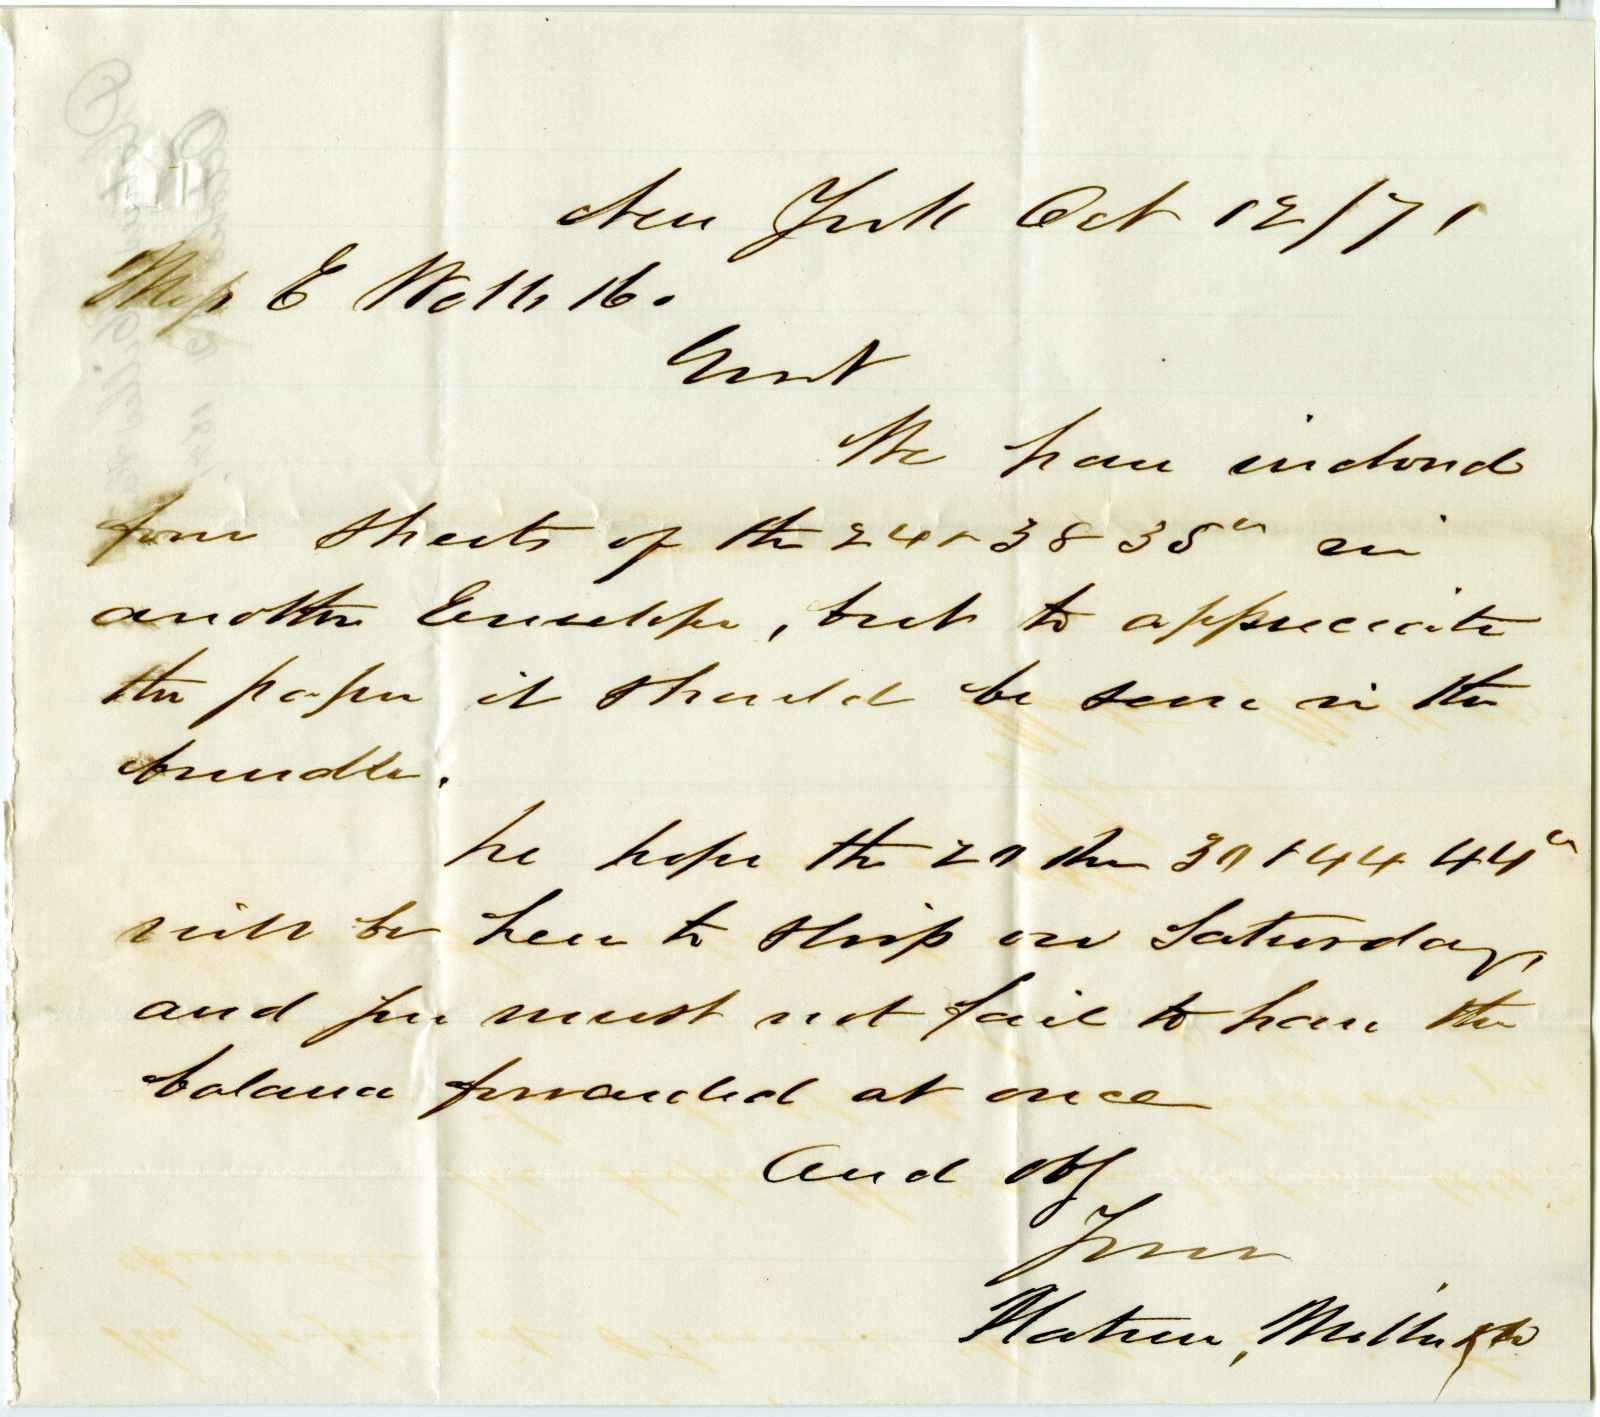 New York Oct 12/71
Mess E Wells & Co.
Gent
We have inclosed
four sheets of the 24 x 38 38" in
another Envelope, but to appreciate
the paper it should be seen in the
bundle.
We hope the 29 Rm 30 x 44 44"
will be here to ship on Saturday,
and you must not fail to have the
balance forwarded at once
And Obg
Yours
Miller & Co